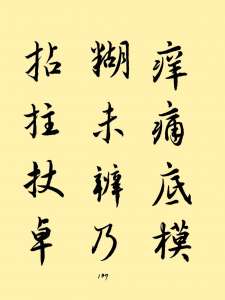 痒痛底模
糊未辨乃
拈拄杖卓